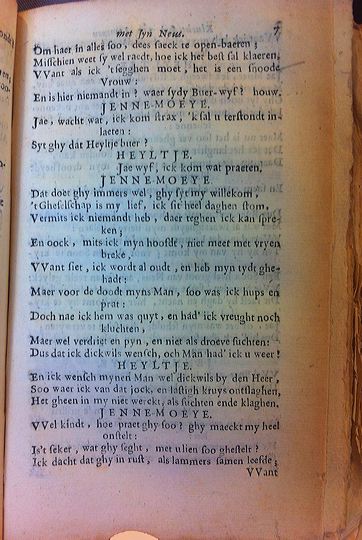 met syn Neus. 5
Om haer in alles soo, dees saeck te open-baeren;
Misschien weet sy wel raedt, hoe ick het best sal klaeren,
VVant als ick 't segghen moet, het is een snoode
Vrouw:
En is hier niemandt in? waer sydy Buer-wyf? houw.
JENNE-MOEYE.
Jae, wacht wat, ick kom strax, 'k sal u terstondt in-
laeten:
Syt ghy dat Heyltje buer?
HEYLTJE.
Jae wyf, ick kom wat praeten.
JENNE-MOEYE.
Dat doet ghy immers wel, ghy syt my willekom,
't Gheselschap is my lief, ick sit heel daghen stom,
Vermits ick niemandt heb, daer teghen ick kan spre-
ken;
En oock, mits ick myn hoofde, niet meer met vryen
breke,
VVant siet, ick wordt al oudt, en heb myn tydt ghe-
hadt:
Maer voor de doodt myns Man, soo was ick hups en
prat:
Doch nae ick hem was quyt, en had' ick vreught noch
kluchten,
Maer wel verdriet en pyn, en niet als droeve suchten:
Dus dat ick dickwils wensch, och Man had' ick u weer!
HEYLTJE.
En ick wensch mynen Man wel dickwils by den Heer,
Soo waer ick van dat jock, en lastigh kruys ontslaghen,
Het gheen in my niet werckt, als suchten ende klaghen.
JENNE-MOEYE.
VVel kindt, hoe praet ghy soo? ghy maeckt my heel
ontstelt:
Is't seker, wat ghy seght, met ulien soo ghestelt?
Ick dacht dat ghy in rust, als lammers samen leefde;
VVant